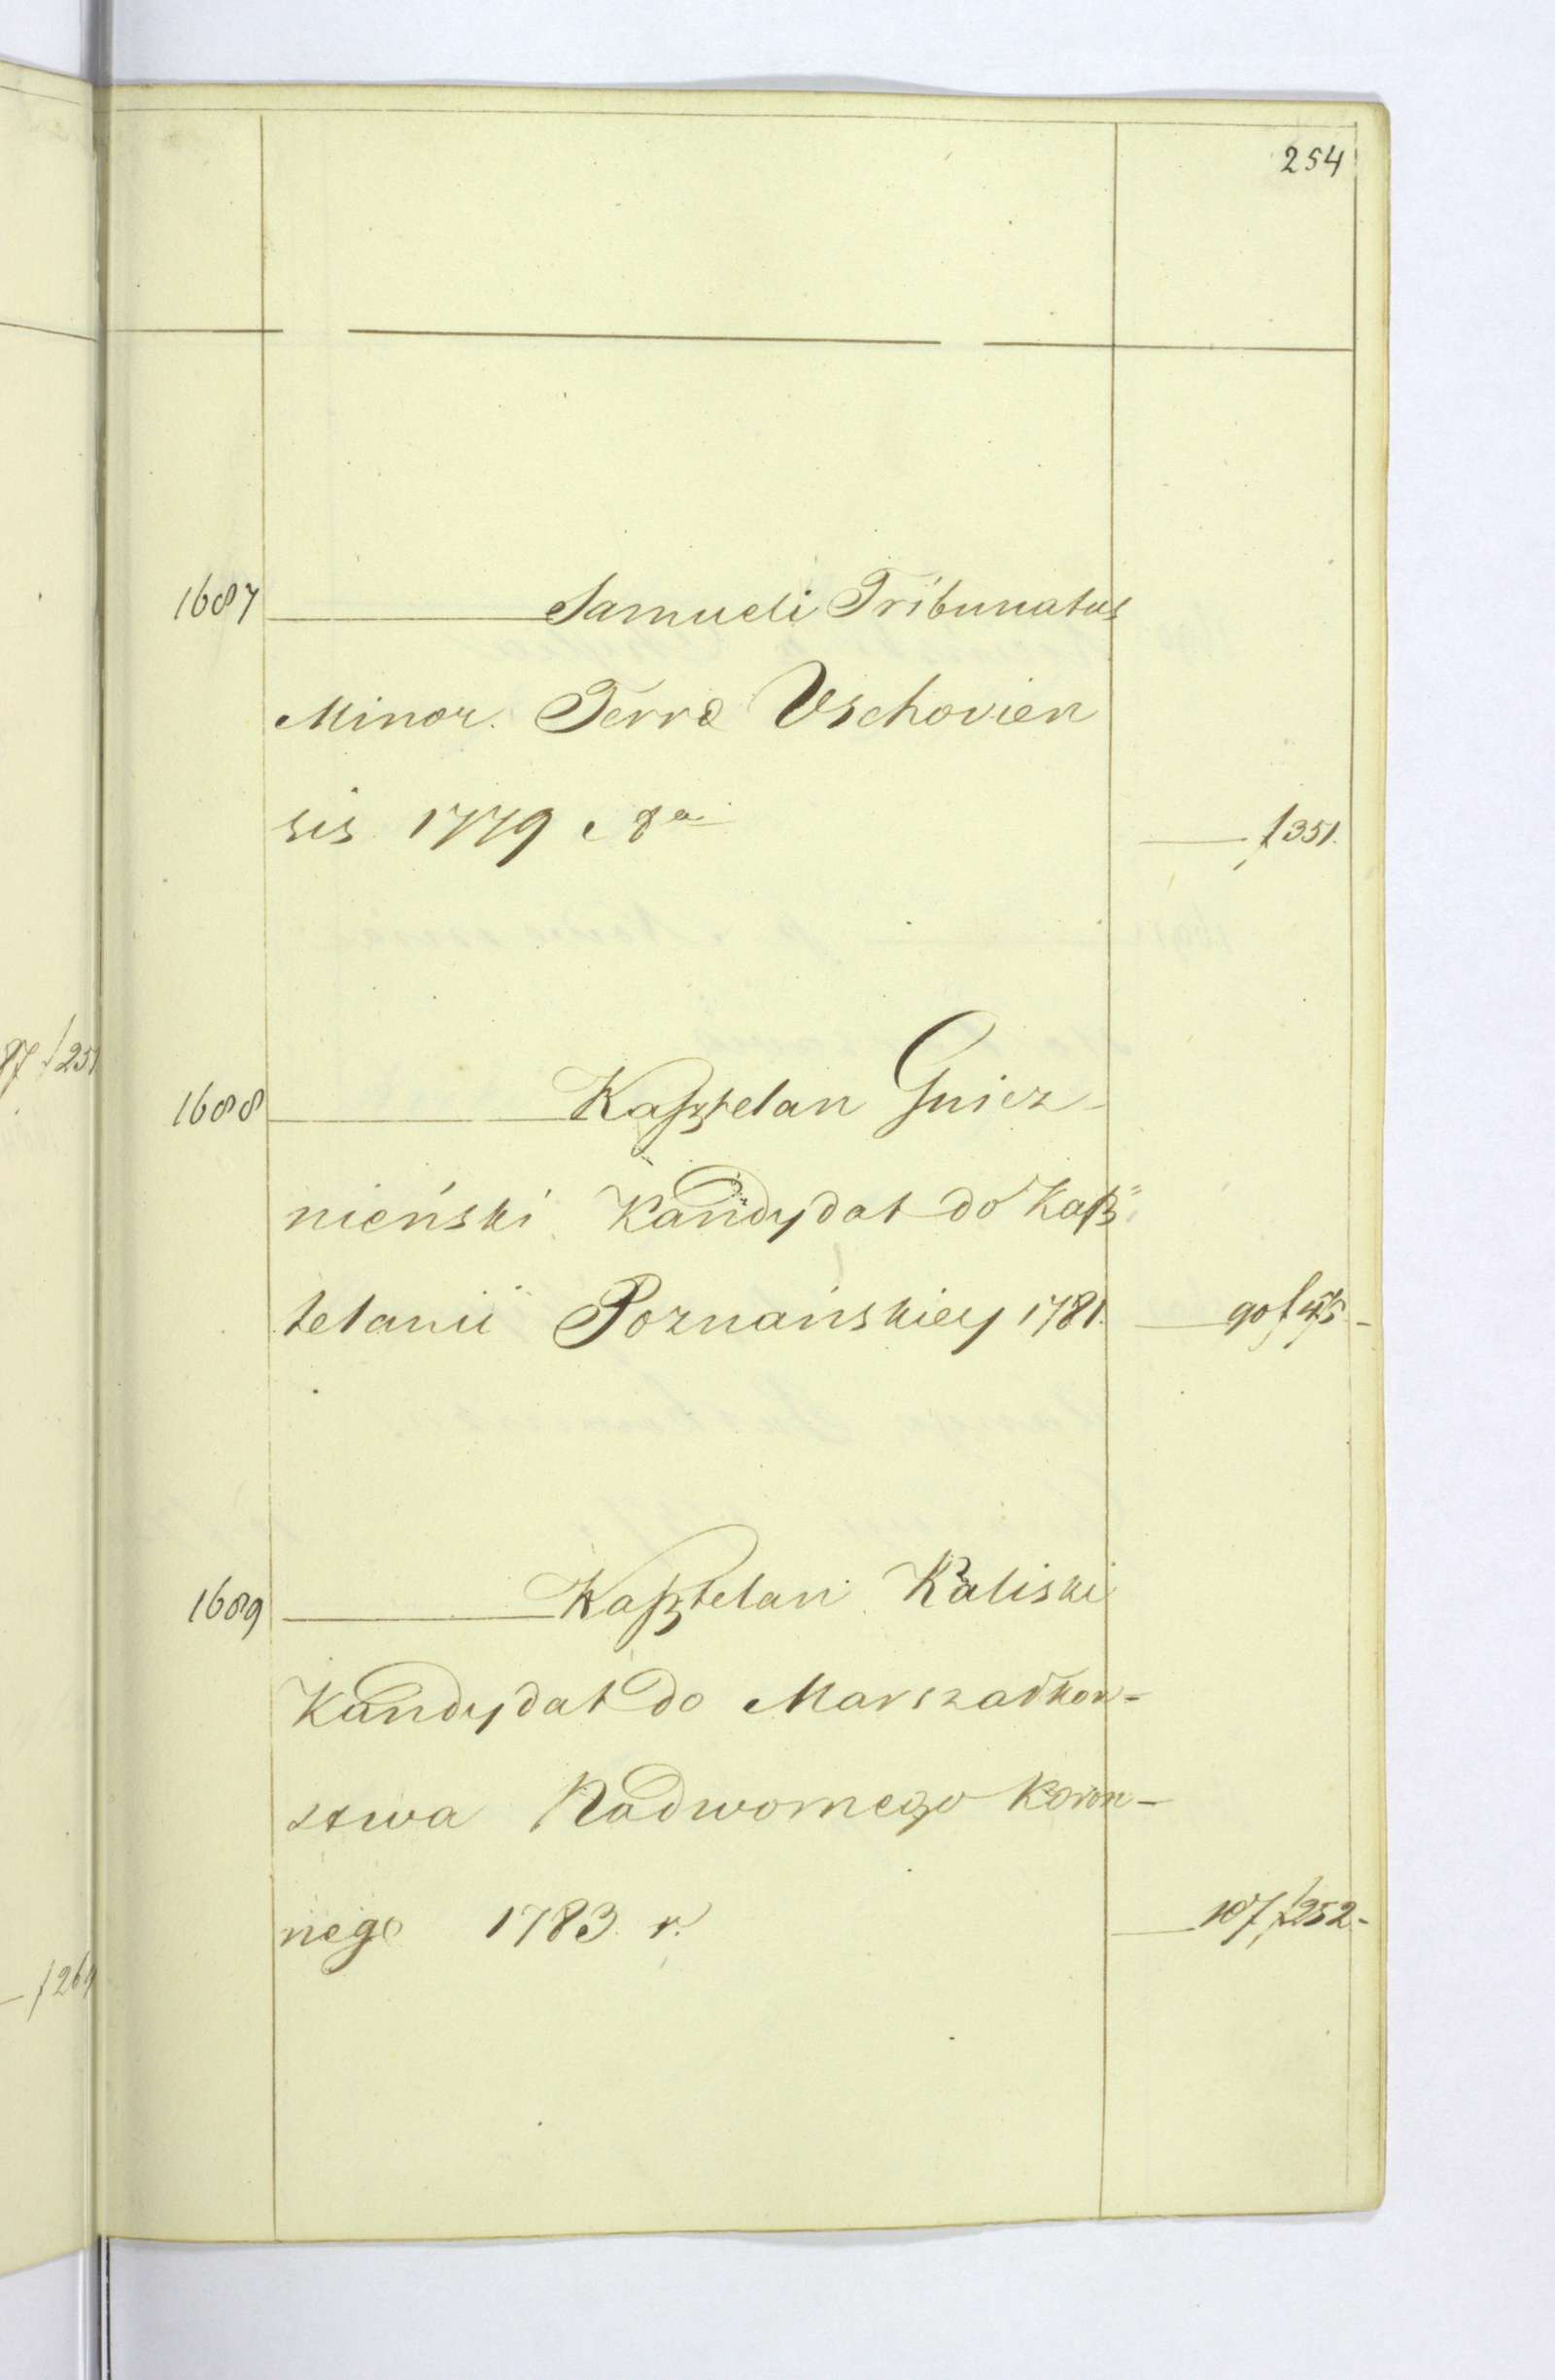 254
1687 Samueli Tribunatus
Minor. Terræ Vschovien
sis 1779 f 351.
1688 Kasztelan Gniez-
nieński Kandydat do Kasz=
telanii Poznańskiey 1781. 90 f 45-
1689 Kasztelan Kaliski
Kandydat do Marszałkow-
stwa Nadwornego Koron-
nego 1783 r. 107 f 252-